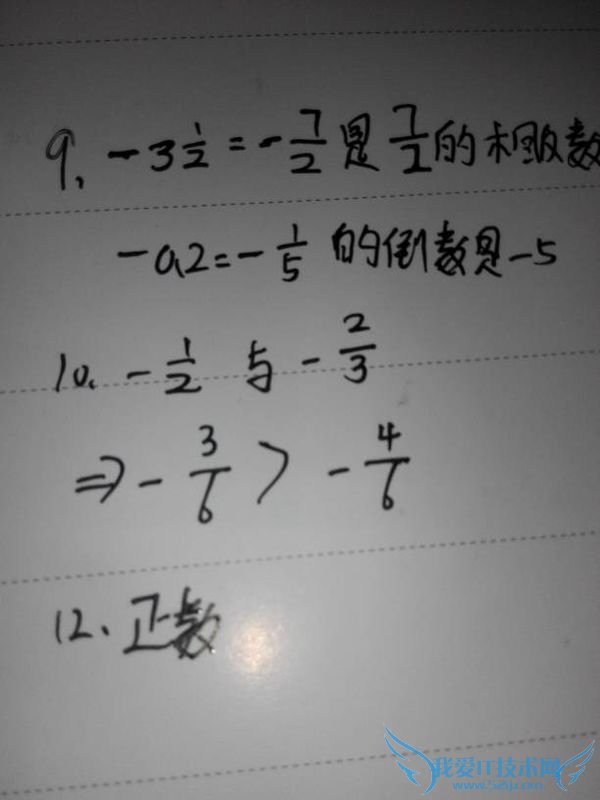 9. -3 1/2 = -7/2 是 7/2 的相反数
-0.2=-1/5 的倒数是-5
10. -1/2 与 -2/3
⇒ -3/6 > -4/6
12、正数
我爱IT技术网
www.52ij.com